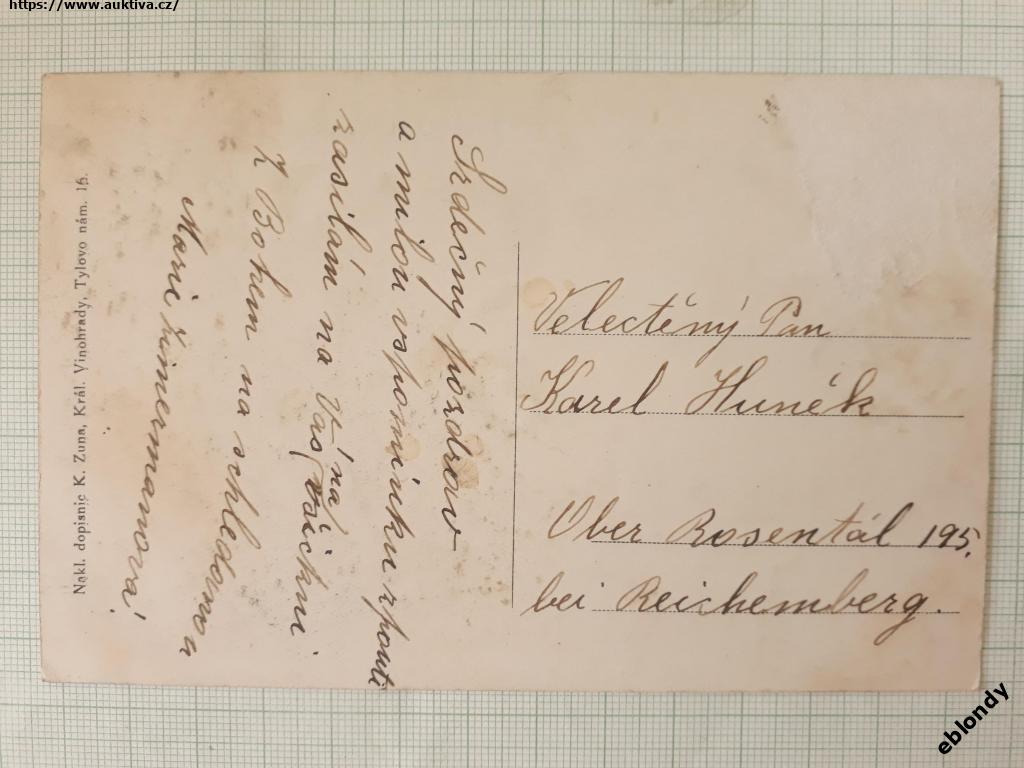 https://www.auktiva.cz/
Srdečný pozdrav
a milou vspomínku z pouti
zasílám na Vás
na všichni
Z Bohem na schledanou
Mari Zimermanová!
Velectěný Pan
Karel Hunék
Ober Rosentál 195.
bei Reichemberg.
Nakl. dopisnic K. Zuna, Král. Vinohrady, Tylovo nám. 15.
eblondy